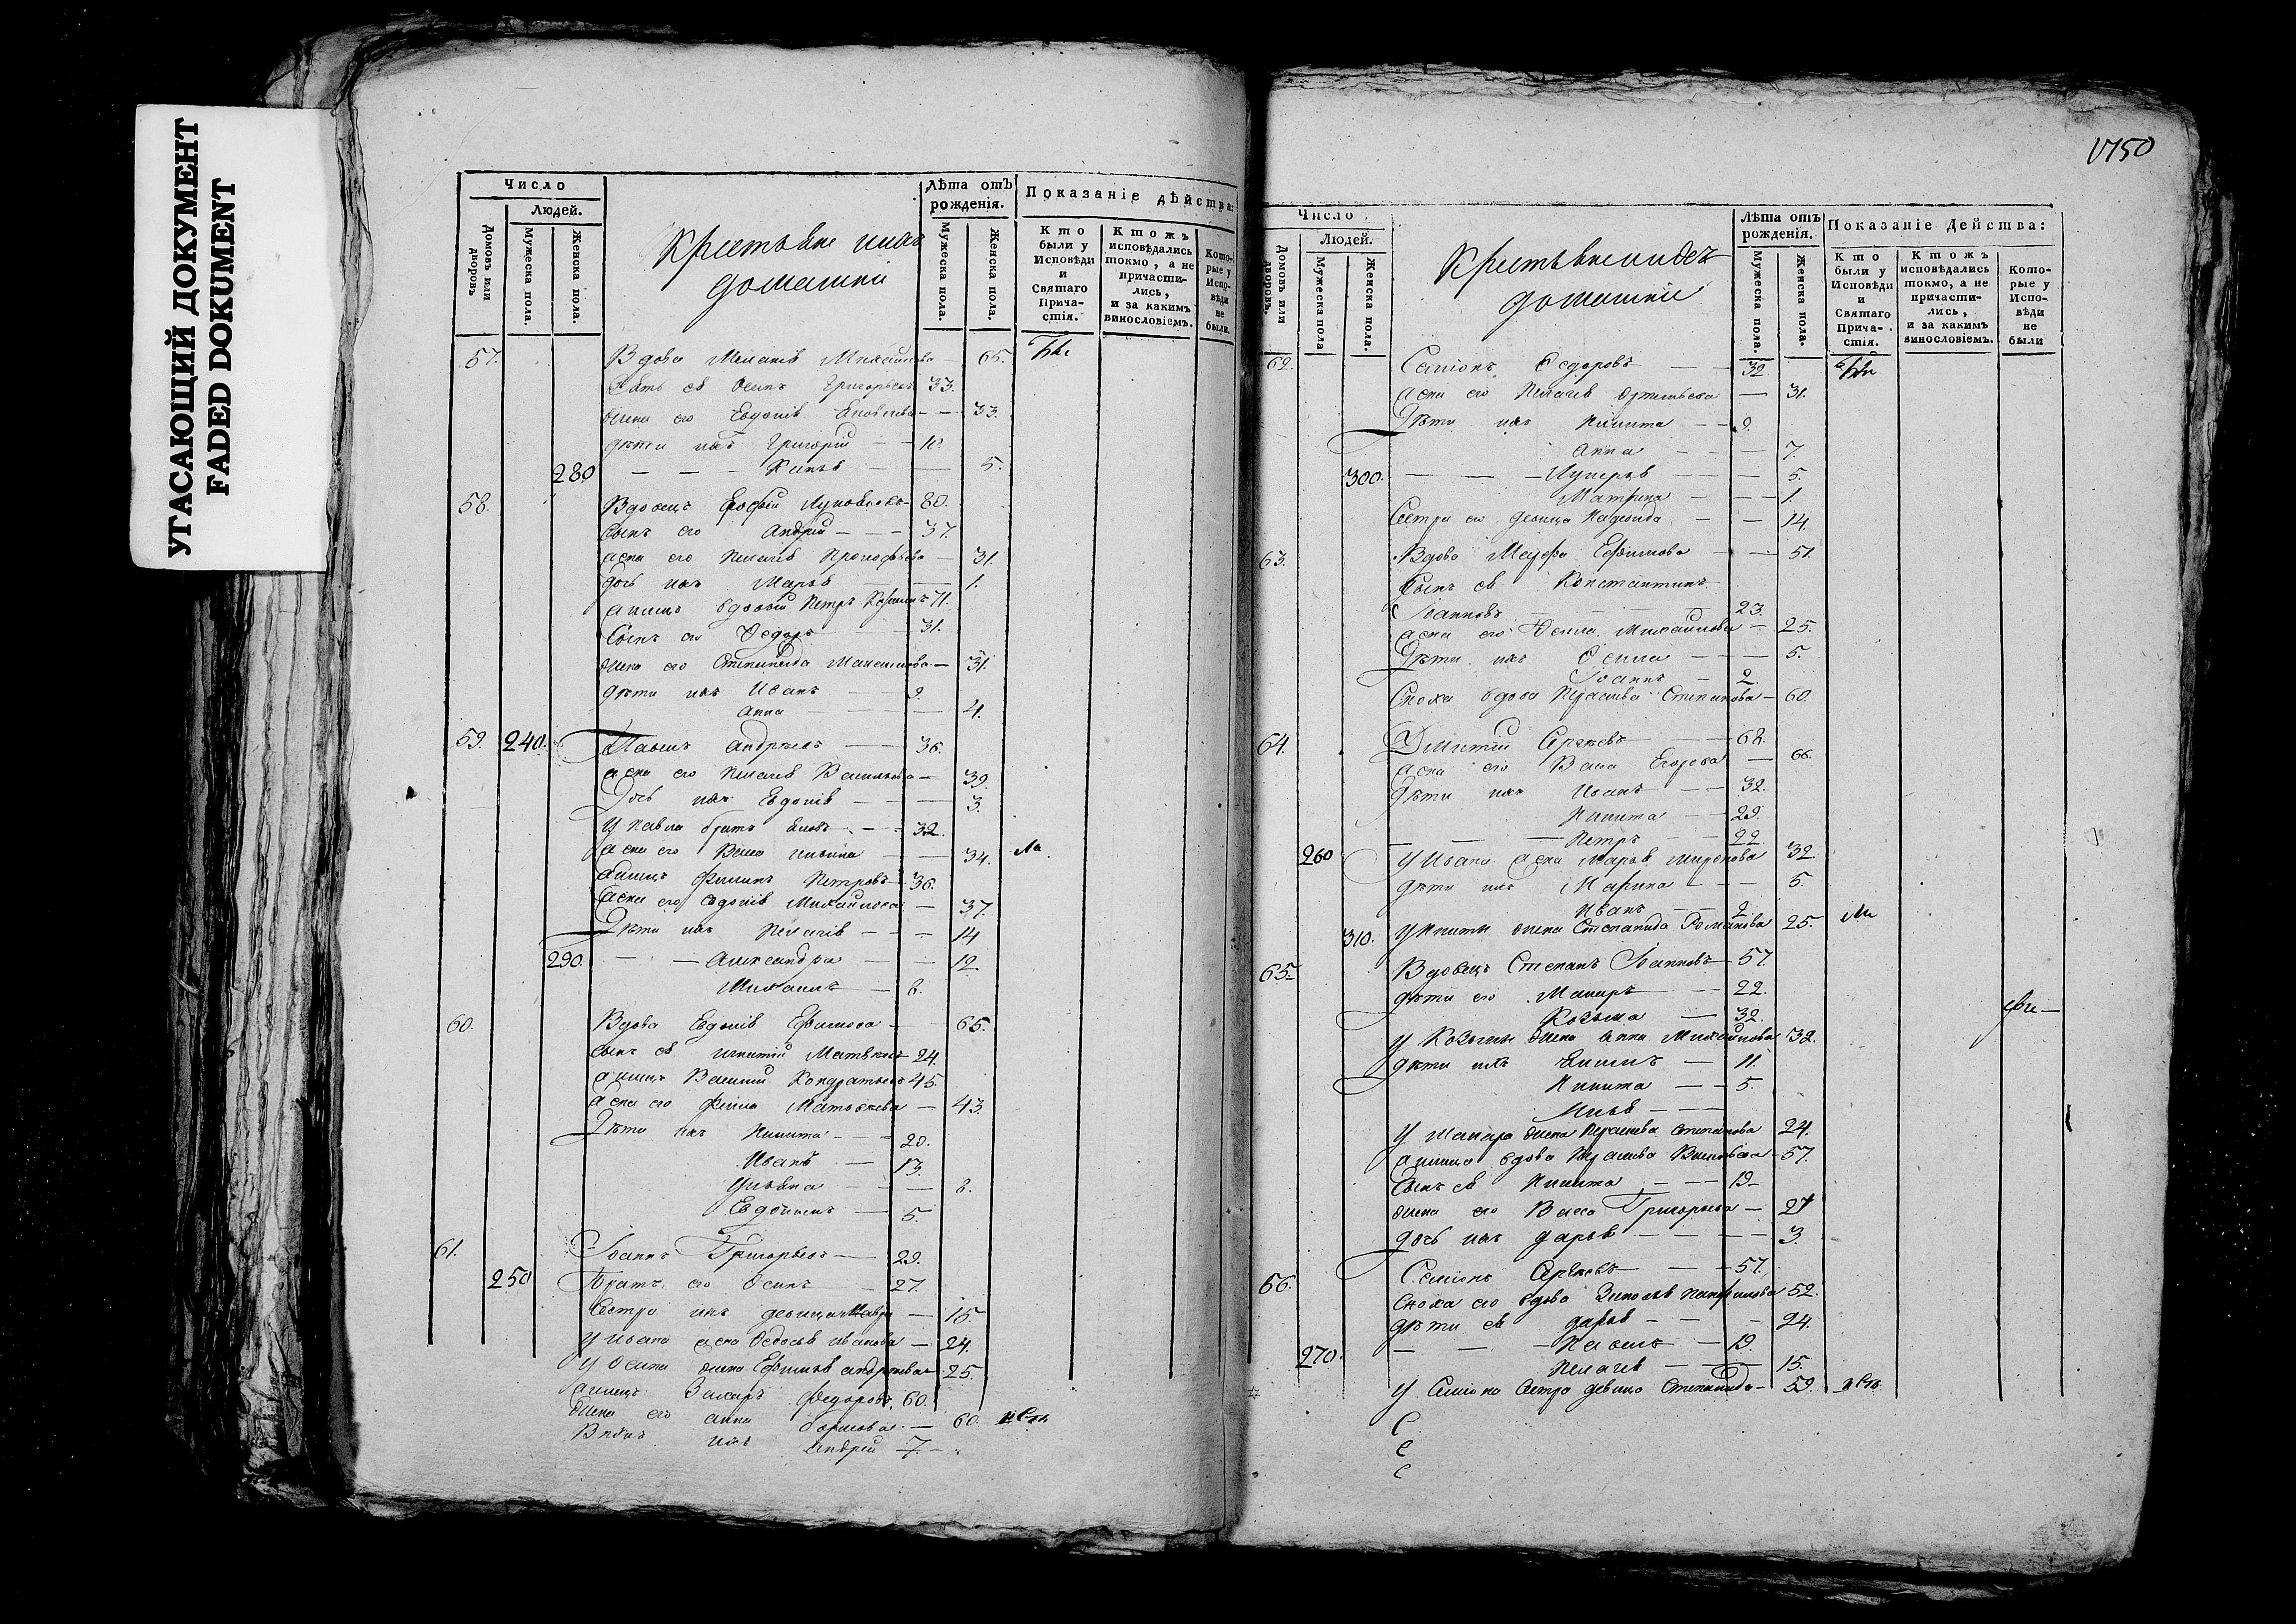 УГАСАЮЩИЙ ДОКУМЕНТ
FADED DOKUMENT
Число
Людей.
Домовъ или дворовъ
Мужеска пола.
Женска пола.
Крестьяне ихъ
домашніи
Лѣта отъ рожденія.
Мужеска пола.
Женска пола.
Показаніе дѣйства:
Кто были у Исповѣди и Святаго Прича-стія.
Ктожъ исповѣдались токмо, а не причасти-лись, и за какимъ винословіемъ.
Кото-рые у Испо-вѣди не были.
57. Вдова Меланія Михайлова 65.
Зять ея Осипъ Григорьевъ 33.
жена его Евдокія Яковлева 33.
дѣти ихъ Григорій 10.
280 5.
58. Вдовецъ 80.
Сынъ его Андрей 37.
жена его Пелагія Прокофьева 31.
дочь ихъ Марья 1.
вдовый Петръ 71.
Сынъ его Ѳедоръ 31.
жена его Степанида 31.
дѣти ихъ Иванъ 9.
Анна 4.
59. 240. Павелъ Андреевъ 36.
жена его Пелагія Васильева 39.
Дочь ихъ Евдокія 3.
У Павла братъ Яковъ 32.
жена его Васса 34.
Филипъ Петровъ 36.
жена его Евдокія Михайлова 37.
Дѣти ихъ Пелагія 14
290. Александра 12.
Михаилъ 8.
60. Вдова Евдокія Ефимова 65.
сынъ ея Игнатій Матвѣевъ 24.
Василій Кондратьевъ 45.
жена его Матвѣева 43.
Дѣти ихъ Никита 20.
Иванъ 13.
Ульяна 8.
Евдокимъ 5.
61. Іоаннъ Григорьевъ 29.
250 Братъ его Осипъ 27.
Сестра ихъ девица Мавра 15.
У Ивана жена Ѳедосья Иванова 24.
У Осипа жена Ефимія Андреева 25.
Захаръ Федоровъ 60.
жена его Анна Борисова 60.
Внукъ ихъ Андрей 7.
1750
Число
Людей.
Домовъ или дворовъ.
Мужеска пола
Женска пола.
Крестьяне и ихъ
домашніи
Лѣта отъ рожденія.
Мужеска пола.
Женска пола.
Показаніе Действа:
Кто были у Исповѣди и Святаго Прича-стія.
Ктожъ исповѣдались токмо, а не причасти-лись, и за какимъ винословіемъ.
Кото-рые у Испо-вѣди не были
62. Семіонъ Ѳедоровъ 32
жена его Пелагія 31.
Дѣти ихъ Никита 9.
Анна 7.
300. 5.
Матрена 1.
Сестра его девица Надежда 14.
63. Вдова Марфа Ефимова 51.
Сынъ ея Константинъ
Іоанновъ 23.
жена его Михайлова 25.
Дѣти ихъ 5.
Іоаннъ 2.
Сноха вдова Прасковья Степанова 60.
64. Дмитрій Сергѣевъ 62.
жена его Васса Егорова 66.
Дѣти ихъ Иванъ 32.
Никита 29.
Петръ 22
260 У Ивана жена Марья Миронова 32
дѣти ихъ Марина 5.
Иванъ 2
310. У Никиты жена Степанида Романова 25.
65. Вдовецъ Степанъ Іоанновъ 57.
дѣти его Макаръ 22.
Козьма 32.
У Козьмы жена Анна Михайлова 32.
дѣти ихъ 11.
Никита 5.
Илья
У Макара жена Прасковья Степанова 24.
вдова Прасковья 57.
Сынъ ея Никита 19
жена его Васса Григорьева 27
дочь ихъ Дарья 3.
66. Семіонъ Сергѣевъ 57.
Сноха его вдова Зиновья Панфилова 52.
дѣти ея Дарья 24.
270. Павелъ 19.
Пелагія 15.
У Семіона сестра девица Степанида 59.
С
С
С